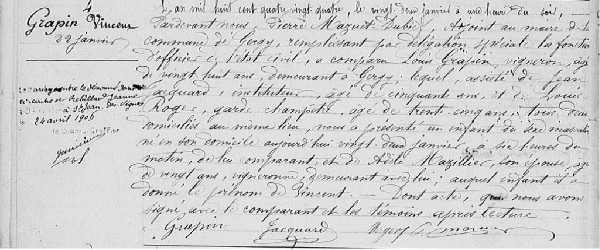 4
Grapin Vincent
22 janvier
L'an mil huit cent quatre vingt quatre, le vingt deux janvier à une heure du soir,
Pardevant nous, Pierre Mazuet Dubief, Adjoint au maire de la
commune de Gergy, remplissant par délégation spéciale la fonction
d'officier de l'état civil, a comparu Louis Grapin, vigneron, âgé
de vingt huit ans, demeurant à Gergy; lequel, assisté de Jean
Jacquard, instituteur, âgé de cinquante ans, et de Louis
Roge, garde champêtre, âgé de trente cinq ans, tous
domiciliés au même lieu, nous a présenté un enfant du sexe masculin
né en son domicile aujourd'hui vingt deux janvier, à six heures du
matin, de lui comparant, et de Adèle Mazillier, son épouse, âgée
de vingt ans, vigneronne, demeurant avec lui; auquel enfant il a
donné le prénom de Vincent. — Dont acte, que nous avons
signé, avec le comparant et les témoins après lecture.
Grapin Jacquard Roge
24 avril 1906